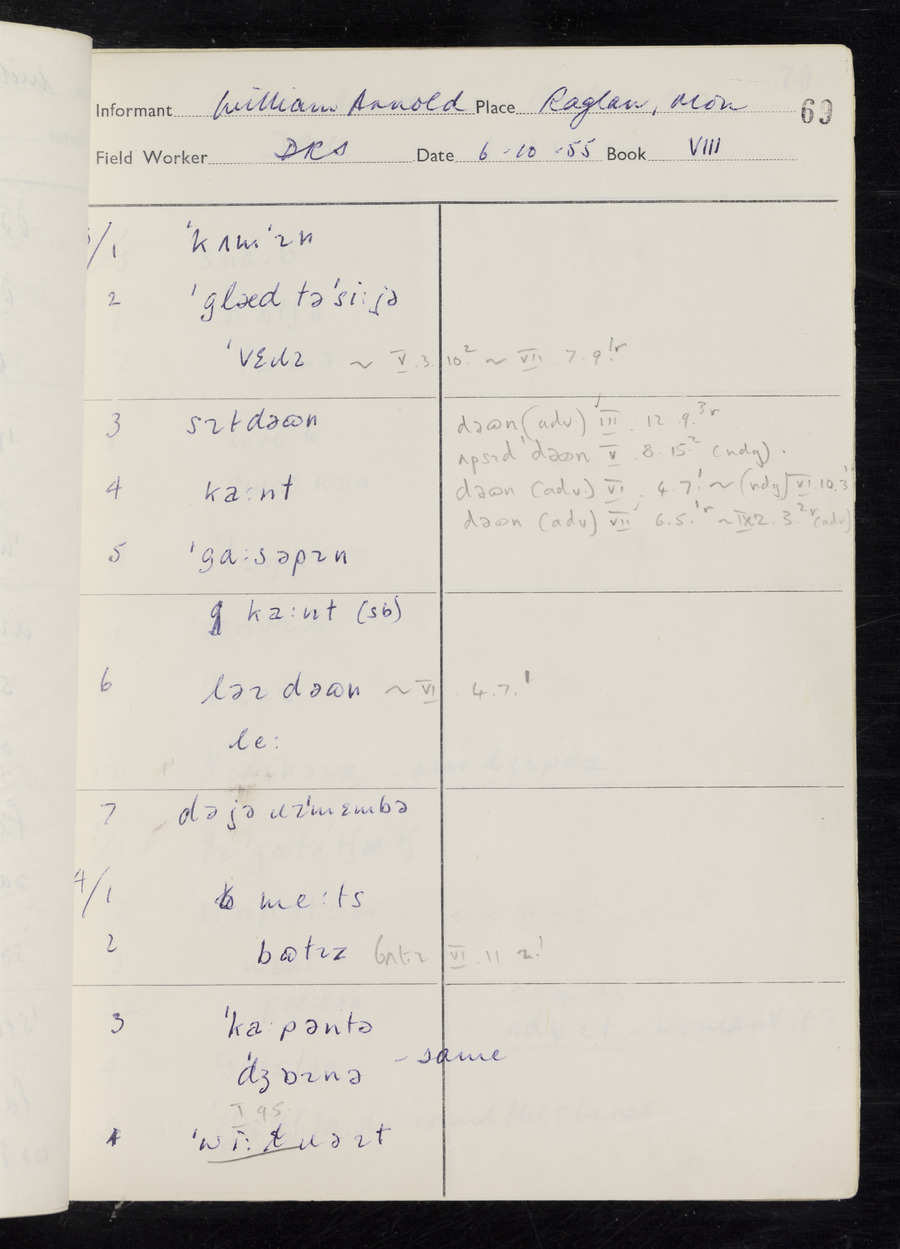 Informant William Arnold Place Raglan, Mon 69
Field Worker DRS Date 6.10.55 Book VIII
3/1 ˈkʌmˈɪn
2 ˈglæd təˈsi:jə
ˈvɛɹɪ ~ V.3.10.² ~ VII.7.9.¹ʳ
3 sɪtdəʊn dəʊn (adv.) III.12.9.³ʳ
ʌpsɪdˈdəʊn V.8.15.² (ndg).
4 ka:nt dəʊn (adv.) VI.4.7.¹ ~ (ndg) VI.10.3¹
dəʊn (adv) VII.6.5.¹ʳ ~ IX.2.3.²ʳ (adv)
5 ˈga:səpɪn
ka:nt (sb)
6 ləɪ dəʊn ~ VI.4.7.¹
le:
7 də jə ɹɪˈmɛmbə
4/1 me:ts
2 bʊtɪz VI.11
3 ˈka:pəntə
ˈdʒɒɪnə – same
I 9 5
4 ˈwi:ɫɹəɪt